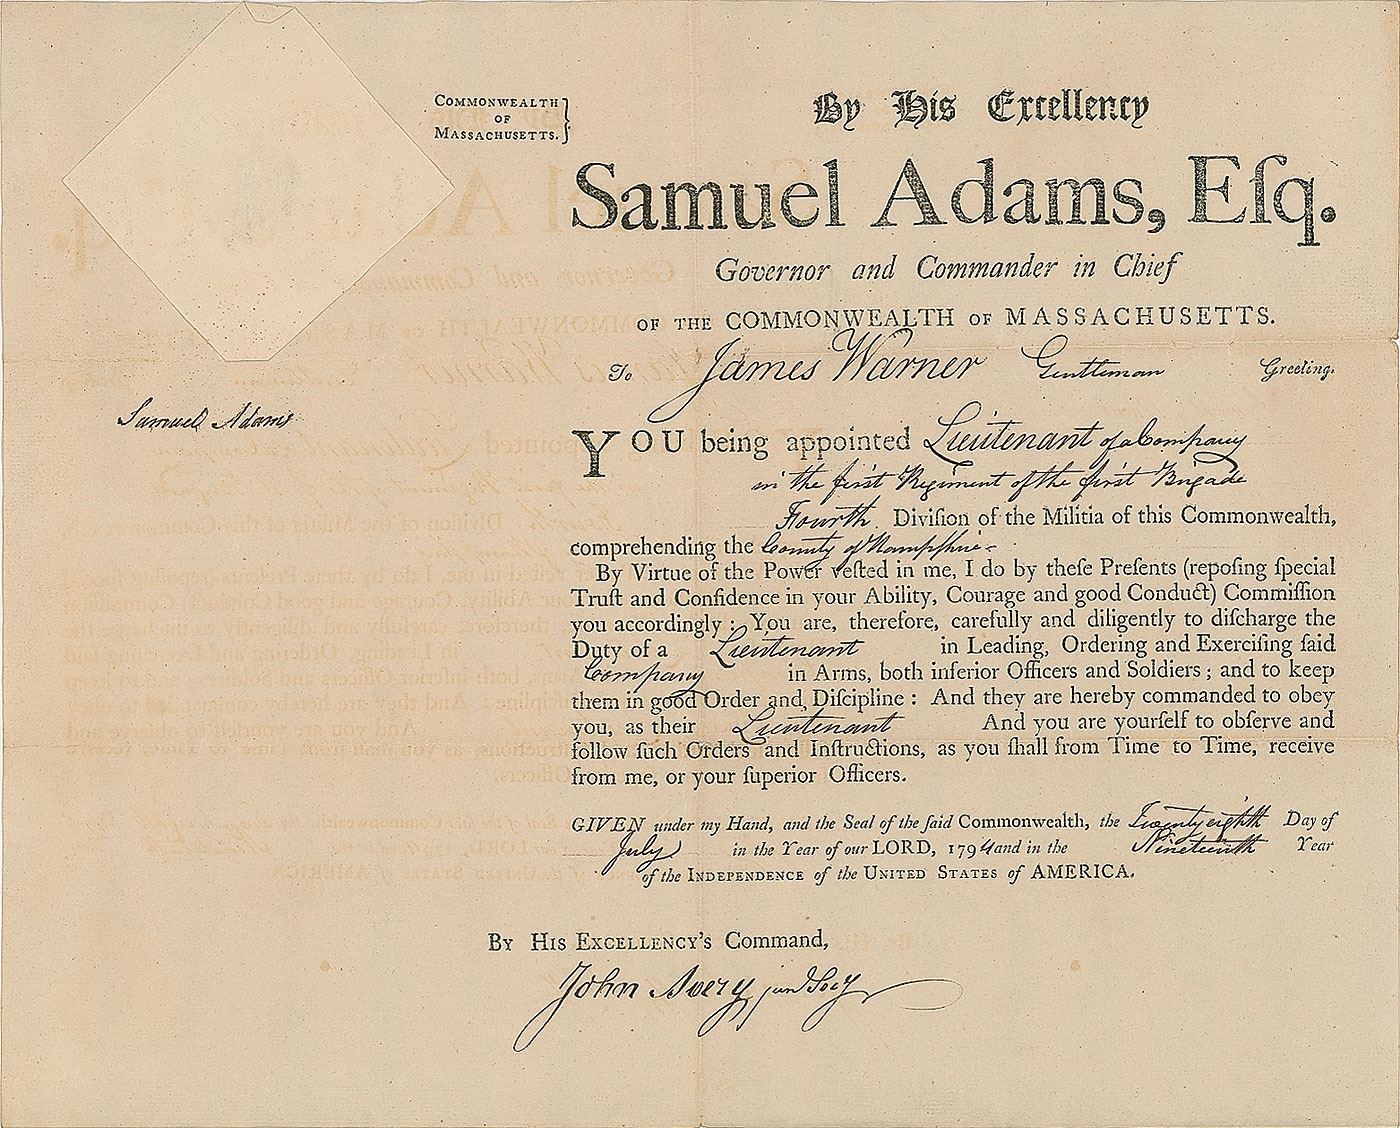 COMMONWEALTH
OF
MASSACHUSETTS.
By His Excellency
Samuel Adams, Eſq.
Governor and Commander in Chief
OF THE COMMONWEALTH OF MASSACHUSETTS.
To James Warner Gentleman Greeting.
Samuel Adams
YOU being appointed Lieutenant of a Company
in the first Regiment of the first Brigade
Fourth Diviſion of the Militia of this Commonwealth,
comprehending the County of Hampshire
By Virtue of the Power veſted in me, I do by theſe Preſents (repoſing ſpecial
Truſt and Confidence in your Ability, Courage and good Conduct) Commiſſion
you accordingly : You are, therefore, carefully and diligently to diſcharge the
Duty of a Lieutenant in Leading, Ordering and Exerciſing ſaid
Company in Arms, both inferior Officers and Soldiers ; and to keep
them in good Order and Diſcipline : And they are hereby commanded to obey
you, as their Lieutenant And you are yourſelf to obſerve and
follow ſuch Orders and Inſtructions, as you ſhall from Time to Time, receive
from me, or your ſuperior Officers.
GIVEN under my Hand, and the Seal of the ſaid Commonwealth, the Twenty eighth Day of
July in the Year of our LORD, 1794 and in the Nineteenth Year
of the INDEPENDENCE of the UNITED STATES of AMERICA.
BY HIS EXCELLENCY'S Command,
John Avery jun Secy